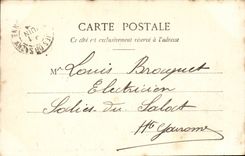 CARTE POSTALE
Ce côté est exclusivement réservé à l'adresse
Mr Louis Brouquet
Electricien
Salies du Salat
Hte Garonne